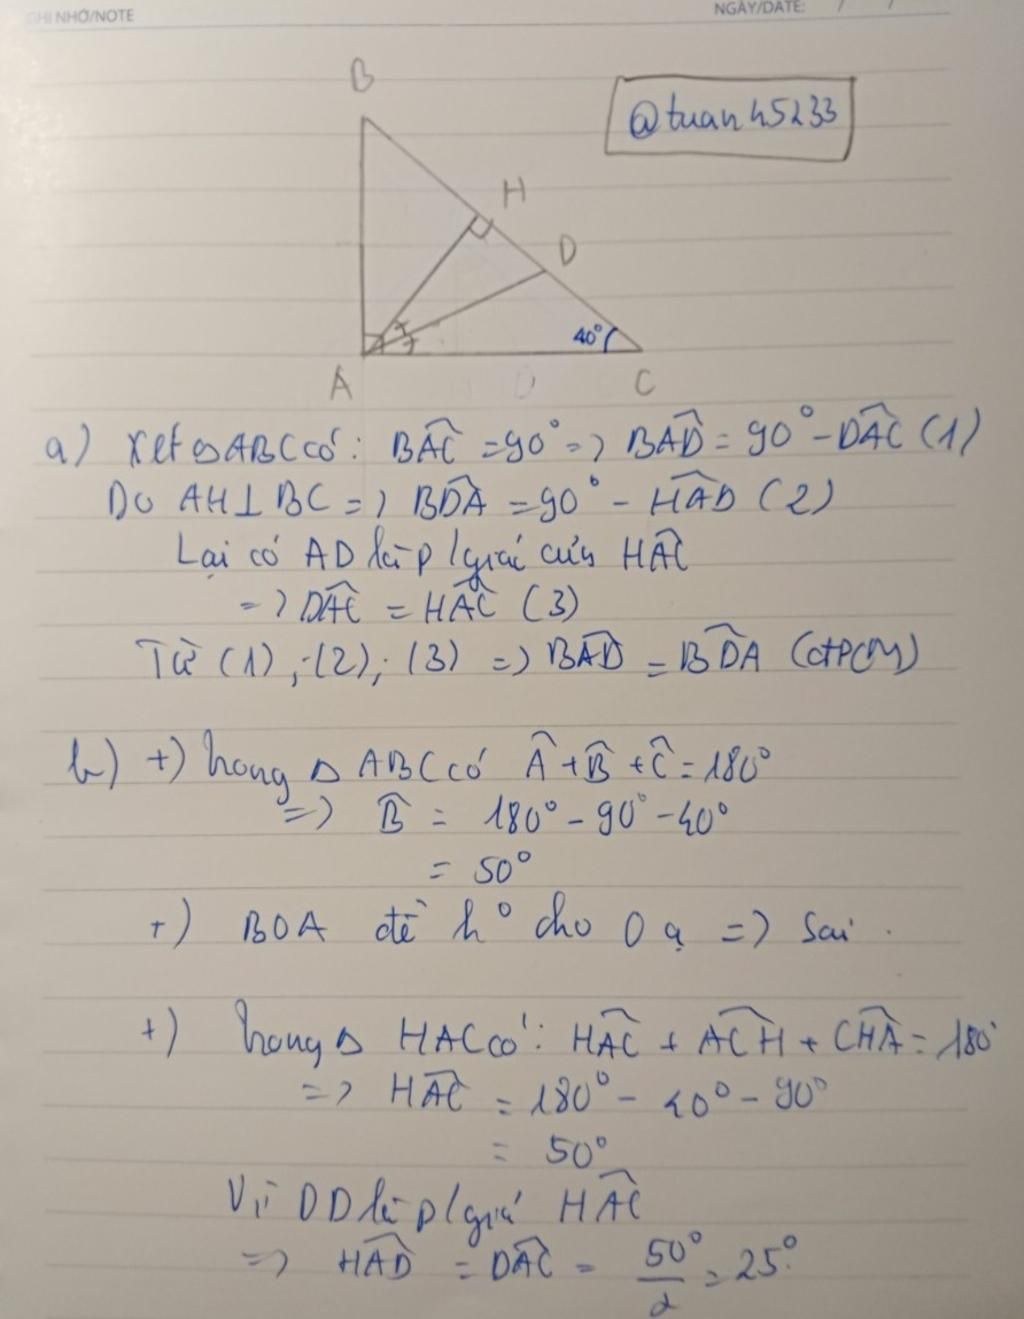 GHI NHỚ/NOTE
NGÀY/DATE: / /
@tuanh5233
B
H
D
40°
A
C
a) Xét △ABC có: BAC = 90° => BAD = 90° - DAC (1)
Do AH⊥BC => BDA = 90° - HAD (2)
Lại có AD là p/giác của HAC
=> DAC = HAC (3)
Từ (1); (2); (3) => BAD = BDA (đPCM)
b) +) Trong △ ABC có A + B + C = 180°
=> B = 180° - 90° - 40°
= 50°
+) BOA đề k° cho O ạ => Sai.
+) Trong △ HAC có: HAC + ACH + CHA = 180°
=> HAC = 180° - 40° - 90°
= 50°
Vì DD là p/giác HAC
=> HAD = DAC = 50°/2 = 25°